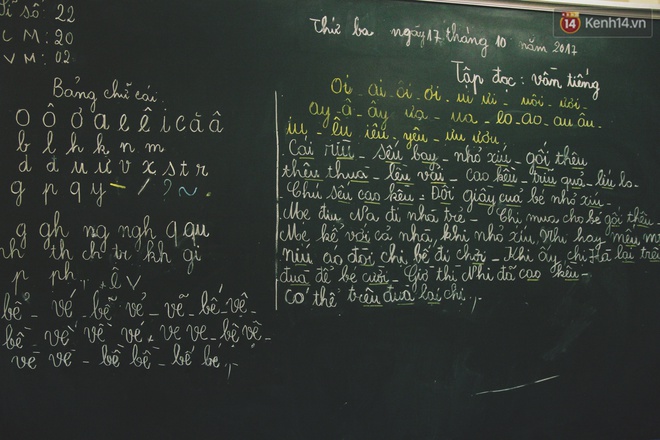 Sĩ số: 22
C M: 20
V M: 02
Bảng chữ cái
o ô ơ a e ê i c ă â
b l h k n m
d đ u ư v x s t r
g p q y - / ? ~ .
g gh ng ngh q qu
nh th ch tr kh gi
p ph , + ê v
bê - vé - bẽ vẻ - vẽ - bế - vê -
bề - vế về vé - ve ve - bê vê -
vẽ vè - bề bê - bé be ,
Thứ ba ngày 17 tháng 10 năm 2017
Tập đọc: vần tiếng
Oi - ai - ôi - ơi - ui - ưi - uôi - ươi -
ay - â - ây - ưa - ua - eo - ao - au - âu -
iu - êu - iêu - yêu - ưu - ươu -
Cái rìu - sếu bay - nhỏ xíu - gối thêu
thêu thùa - lều vải - cao kều - trĩu quả - líu lo -
Chú sếu cao kều - Đôi giày của bé nhỏ xíu -
Mẹ địu Na đi nhà trẻ - Chị mua cho bé gối thêu -
Mẹ kể với cả nhà, khi nhỏ xíu, Nhi hay mếu
níu áo đòi chị bế đi chơi - Khi ấy, chị Hà lại trêu
đùa để bé cười - Giờ thì Nhi đã cao kều -
có thể trêu đùa lại chị .
14 Kenh14.vn